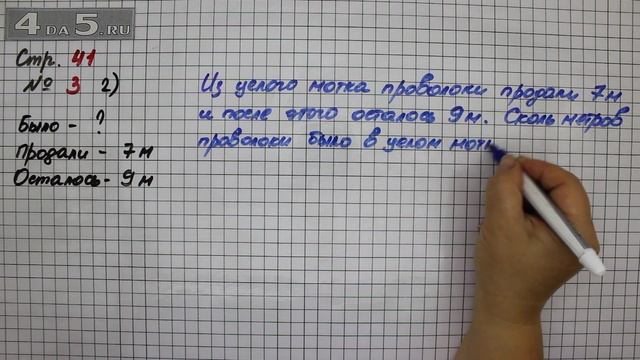 4DA5.RU
Стр. 41
№ 3 2)
Было - ?
Продали - 7 м
Осталось - 9 м
Из целого мотка проволоки продали 7 м
и после этого осталось 9 м. Сколь метров
проволоки было в целом мотк